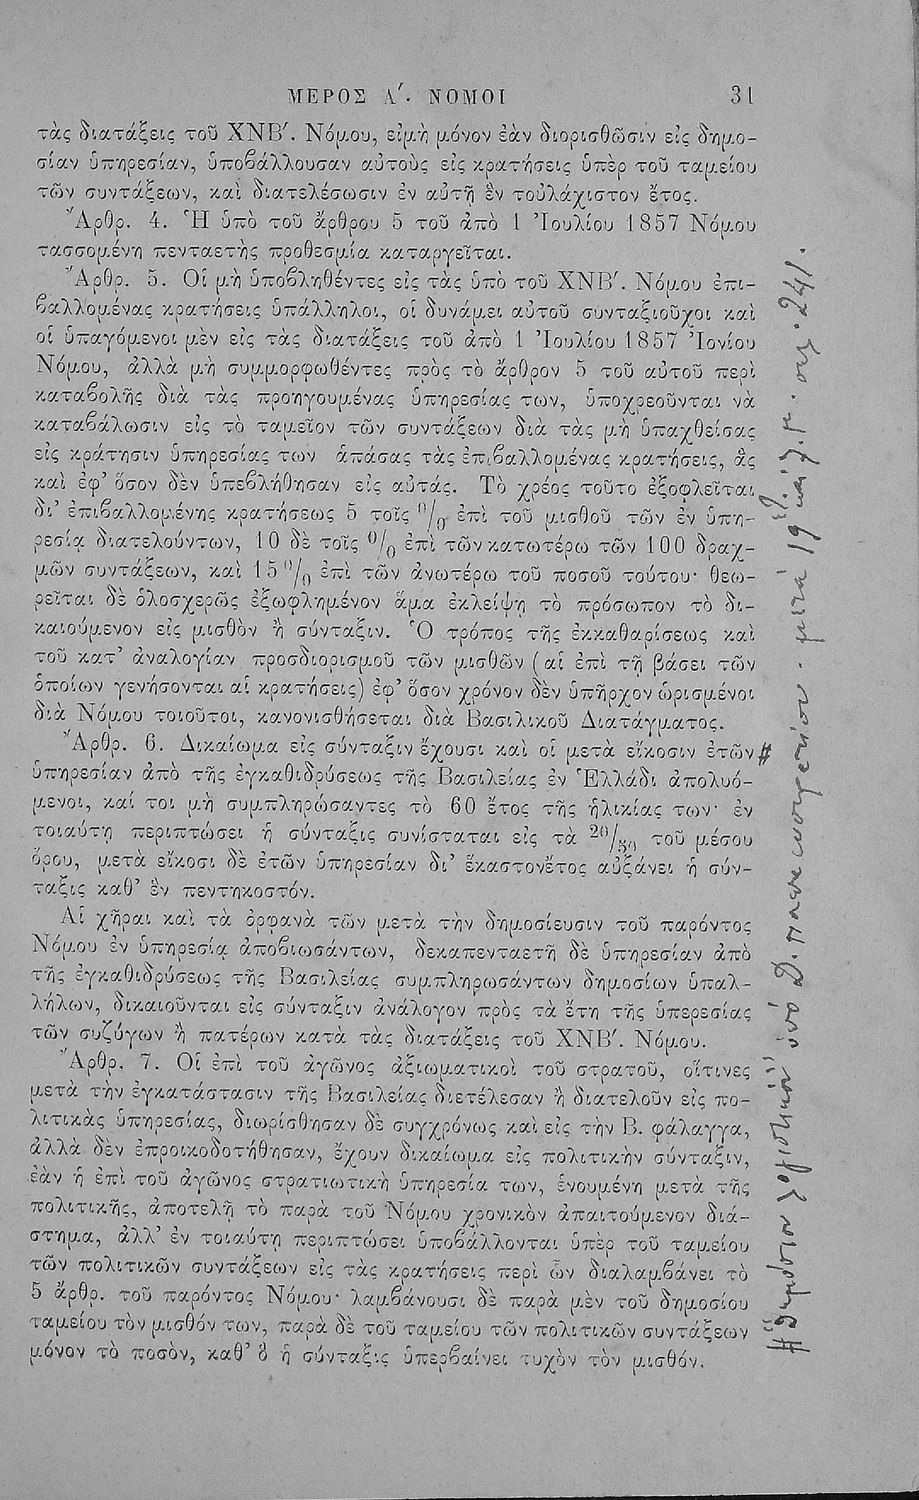 ΜΕΡΟΣ Α΄. ΝΟΜΟΙ 31
τὰς διατάξεις τοῦ ΧΝΒ΄. Νόμου, εἰμὴ μόνον ἐὰν διορισθῶσιν εἰς δημο-
σίαν ὑπηρεσίαν, ὑποβάλλουσαν αὐτοὺς εἰς κρατήσεις ὑπὲρ τοῦ ταμείου
τῶν συντάξεων, καὶ διατελέσωσιν ἐν αὐτῇ ἓν τοὐλάχιστον ἔτος.
Ἄρθρ. 4. Ἡ ὑπὸ τοῦ ἄρθρου 5 τοῦ ἀπὸ 1 Ἰουλίου 1857 Νόμου
τασσομένη πενταετὴς προθεσμία καταργεῖται.
Ἄρθρ. 5. Οἱ μὴ ὑποβληθέντες εἰς τὰς ὑπὸ τοῦ ΧΝΒ΄. Νόμου ἐπι-
βαλλομένας κρατήσεις ὑπάλληλοι, οἱ δυνάμει αὐτοῦ συνταξιοῦχοι καὶ
οἱ ὑπαγόμενοι μὲν εἰς τὰς διατάξεις τοῦ ἀπὸ 1 Ἰουλίου 1857 Ἰονίου
Νόμου, ἀλλὰ μὴ συμμορφωθέντες πρὸς τὸ ἄρθρον 5 τοῦ αὐτοῦ περὶ
καταβολῆς διὰ τὰς προηγουμένας ὑπηρεσίας των, ὑποχρεοῦνται νὰ
καταβάλωσιν εἰς τὸ ταμεῖον τῶν συντάξεων διὰ τὰς μὴ ὑπαχθείσας
εἰς κράτησιν ὑπηρεσίας των ἁπάσας τὰς ἐπιβαλλομένας κρατήσεις, ἃς
καὶ ἐφ' ὅσον δὲν ὑπεβλήθησαν εἰς αὐτάς. Τὸ χρέος τοῦτο ἐξοφλεῖται
δι' ἐπιβαλλομένης κρατήσεως 5 τοῖς 0/0 ἐπὶ τοῦ μισθοῦ τῶν ἐν ὑπη-
ρεσίᾳ διατελούντων, 10 δὲ τοῖς 0/0 ἐπὶ τῶν κατωτέρω τῶν 100 δραχ-
μῶν συντάξεων, καὶ 15 0/0 ἐπὶ τῶν ἀνωτέρω τοῦ ποσοῦ τούτου· θεω-
ρεῖται δὲ ὁλοσχερῶς ἐξωφλημένον ἅμα ἐκλείψῃ τὸ πρόσωπον τὸ δι-
καιούμενον εἰς μισθὸν ἢ σύνταξιν. Ὁ τρόπος τῆς ἐκκαθαρίσεως καὶ
τοῦ κατ' ἀναλογίαν προσδιορισμοῦ τῶν μισθῶν (αἱ ἐπὶ τῇ βάσει τῶν
ὁποίων γενήσονται αἱ κρατήσεις) ἐφ' ὅσον χρόνον δὲν ὑπῆρχον ὡρισμένοι
διὰ Νόμου τοιοῦτοι, κανονισθήσεται διὰ Βασιλικοῦ Διατάγματος.
Ἄρθρ. 6. Δικαίωμα εἰς σύνταξιν ἔχουσι καὶ οἱ μετὰ εἴκοσιν ἐτῶν #
ὑπηρεσίαν ἀπὸ τῆς ἐγκαθιδρύσεως τῆς Βασιλείας ἐν Ἑλλάδι ἀπολυό-
μενοι, καί τοι μὴ συμπληρώσαντες τὸ 60 ἔτος τῆς ἡλικίας των· ἐν
τοιαύτῃ περιπτώσει ἡ σύνταξις συνίσταται εἰς τὰ 20/50 τοῦ μέσου
ὅρου, μετὰ εἴκοσι δὲ ἐτῶν ὑπηρεσίαν δι' ἕκαστον ἔτος αὐξάνει ἡ σύν-
ταξις καθ' ἓν πεντηκοστόν.
Αἱ χῆραι καὶ τὰ ὀρφανὰ τῶν μετὰ τὴν δημοσίευσιν τοῦ παρόντος
Νόμου ἐν ὑπηρεσίᾳ ἀποβιωσάντων, δεκαπενταετῆ δὲ ὑπηρεσίαν ἀπὸ
τῆς ἐγκαθιδρύσεως τῆς Βασιλείας συμπληρωσάντων δημοσίων ὑπαλ-
λήλων, δικαιοῦνται εἰς σύνταξιν ἀνάλογον πρὸς τὰ ἔτη τῆς ὑπερεσίας
τῶν συζύγων ἢ πατέρων κατὰ τὰς διατάξεις τοῦ ΧΝΒ΄. Νόμου.
Ἄρθρ. 7. Οἱ ἐπὶ τοῦ ἀγῶνος ἀξιωματικοὶ τοῦ στρατοῦ, οἵτινες
μετὰ τὴν ἐγκατάστασιν τῆς Βασιλείας διετέλεσαν ἢ διατελοῦν εἰς πο-
λιτικὰς ὑπηρεσίας, διωρίσθησαν δὲ συγχρόνως καὶ εἰς τὴν Β. φάλαγγα,
ἀλλὰ δὲν ἐπροικοδοτήθησαν, ἔχουν δικαίωμα εἰς πολιτικὴν σύνταξιν,
ἐὰν ἡ ἐπὶ τοῦ ἀγῶνος στρατιωτικὴ ὑπηρεσία των, ἑνουμένη μετὰ τῆς
πολιτικῆς, ἀποτελῇ τὸ παρὰ τοῦ Νόμου χρονικὸν ἀπαιτούμενον διά-
στημα, ἀλλ' ἐν τοιαύτῃ περιπτώσει ὑποβάλλονται ὑπὲρ τοῦ ταμείου
τῶν πολιτικῶν συντάξεων εἰς τὰς κρατήσεις περὶ ὧν διαλαμβάνει τὸ
5 ἄρθρ. τοῦ παρόντος Νόμου· λαμβάνουσι δὲ παρὰ μὲν τοῦ δημοσίου
ταμείου τὸν μισθόν των, παρὰ δὲ τοῦ ταμείου τῶν πολιτικῶν συντάξεων
μόνον τὸ ποσὸν, καθ' ὃ ἡ σύνταξις ὑπερβαίνει τυχὸν τὸν μισθόν.
# Δημόσιον λογιστικόν ὑπό Δ. μετά 19 σελ. 241.